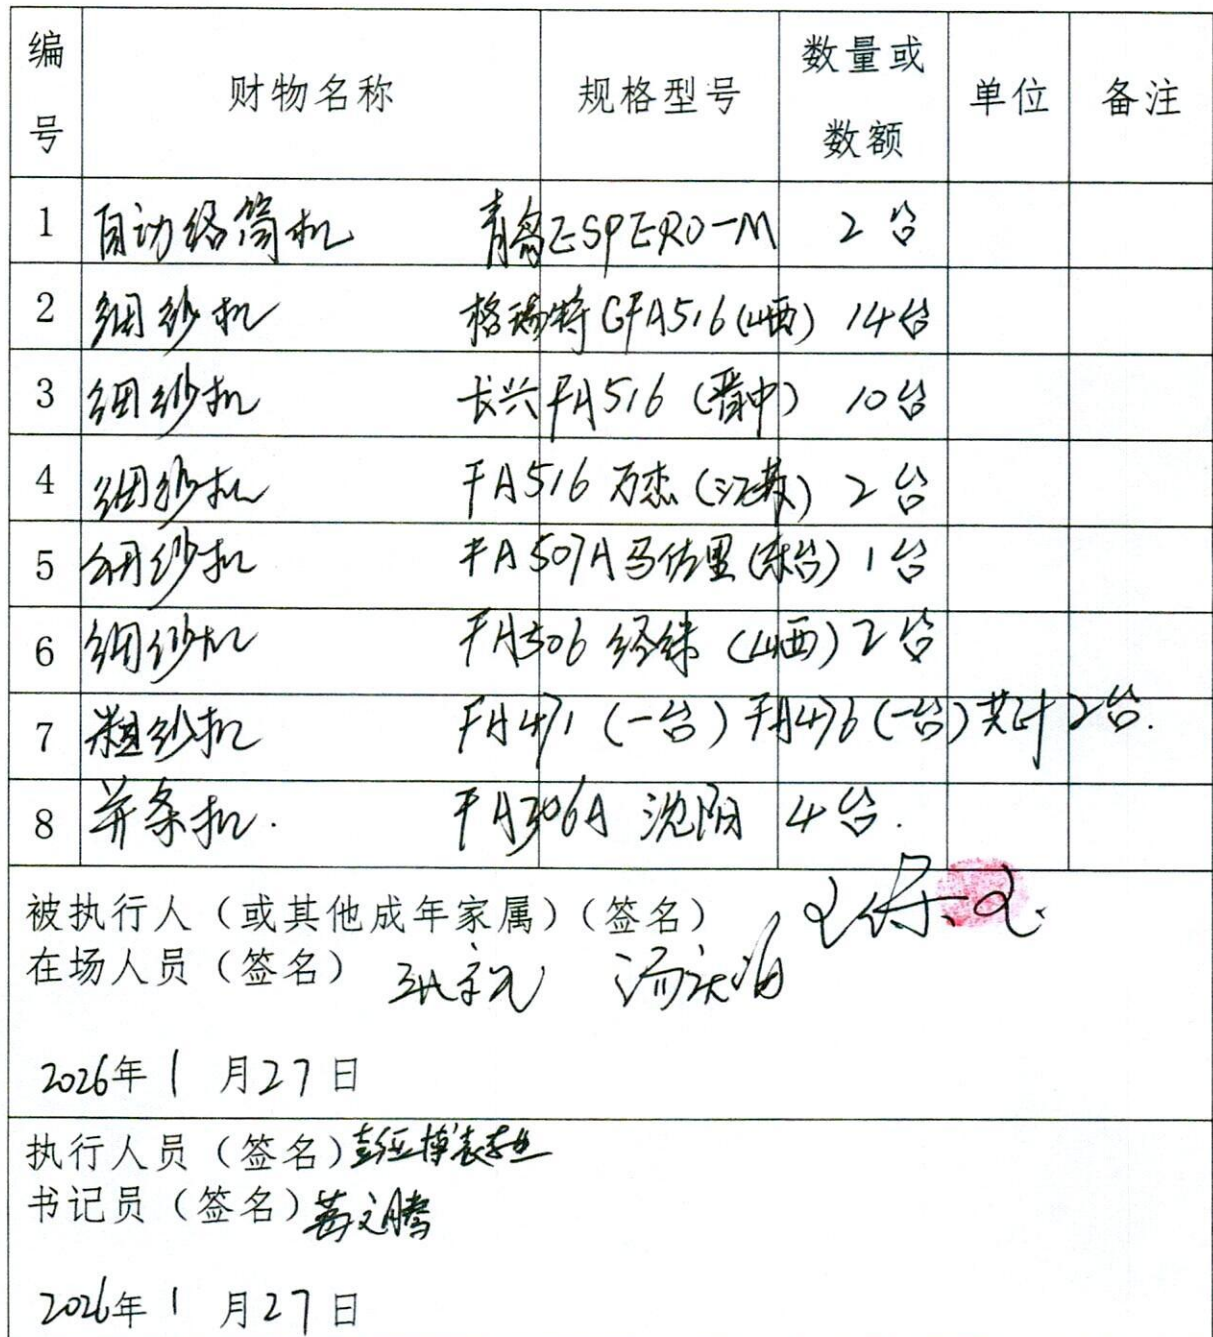 编号 财物名称 规格型号 数量或数额 单位 备注
1 自动络筒机 青岛ESPERO-M 2台
2 细纱机 格瑞特GFA516(山西) 14台
3 细纱机 长兴FA516(晋中) 10台
4 细纱机 FA516 万杰(江苏) 2台
5 细纱机 FA507A马佐里(东台) 1台
6 细纱机 FA506 经纬(山西) 2台
7 粗纱机 FA471(一台) FA476(一台) 共计2台.
8 并条机. FA306A 沈阳 4台.
被执行人（或其他成年家属）（签名）
在场人员（签名）
2026年1月27日
执行人员（签名）
书记员（签名）
2026年1月27日